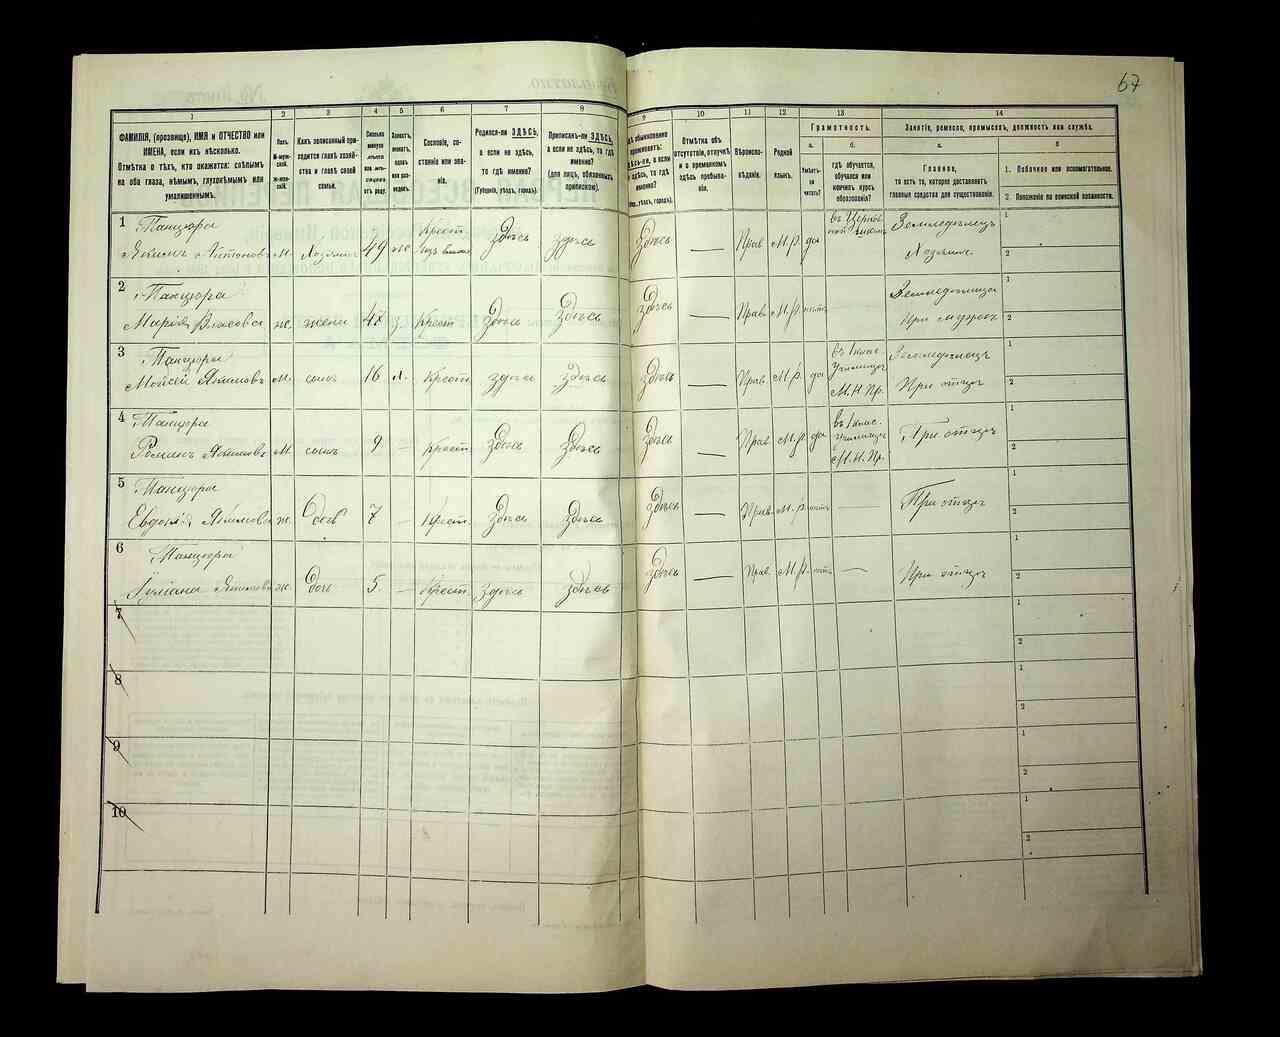 67
1 2 3 4 5 6 7 8 9 10 11 12 13 14
ФАМИЛІЯ, (прозвище), ИМЯ и ОТЧЕСТВО или
ИМЕНА, если ихъ нѣсколько.
Отмѣтка о тѣхъ, кто окажется: слѣпымъ
на оба глаза, нѣмымъ, глухонѣмымъ или
умалишеннымъ.
Полъ.
М-мужской.
Ж-женскій.
Какъ записанный приходится
главѣ хозяйства и главѣ своей
семьи.
Сколько
минуло
лѣтъ
или мѣсяцевъ
отъ роду.
Холостъ,
женатъ,
вдовъ
или разведенъ.
Сословіе, состояніе
или званіе.
Родился-ли ЗДѢСЬ,
а если не здѣсь,
то гдѣ именно?
(Губернія, уѣздъ, городъ).
Приписанъ-ли ЗДѢСЬ,
а если не здѣсь, то гдѣ
именно?
(для лицъ, обязанныхъ
припискою).
Отмѣтка объ
отсутствіи, отлучкѣ
и о временномъ
здѣсь пребываніи.
Вѣроисповѣданіе.
Родной
языкъ.
Грамотность.
а.
Умѣетъ-ли
читать?
б.
гдѣ обучается,
обучался или
кончилъ курсъ
образованія?
Занятіе, ремесло, промыселъ, должность или служба.
а.
Главное,
то есть то, которое доставляетъ
главныя средства для существованія.
б
1. Побочное или вспомогательное.
2. Положеніе по воинской повинности.
1 Танцюра
Якимъ Антоновъ М. Хозяинъ 49 ж. Крест. Здѣсь здѣсь Здѣсь — Прав М.р. да Земледѣлецъ
Хозяинъ
2 Танцюра
Марія Власова ж. жена 47 Крест Здѣсь Здѣсь Здѣсь — Прав. М.р. нѣтъ Земледѣлица
При мужѣ
3 Танцюра
Моисей Якимовъ М. сынъ 16 х. Крест здѣсь Здѣсь Здѣсь — Прав. М.р. да въ 1 клас. Училищѣ М.Н.Пр. Земледѣлецъ
При отцѣ
4 Танцюра
Романъ Якимовъ М. сынъ 9 — Крест Здѣсь Здѣсь Здѣсь — Прав М.р. да въ 1 клас. Училищѣ М.Н.Пр. При отцѣ
5 Танцюра
Евдокія Якимова ж. Дочь 7 — Крест. Здѣсь Здѣсь Здѣсь — Прав. М.р. нѣтъ — При отцѣ
6 Танцюра
Якимова ж. Дочь 5. — Крест. Здѣсь Здѣсь Здѣсь — Прав. М.р. нѣтъ — При отцѣ
7
8
9
10